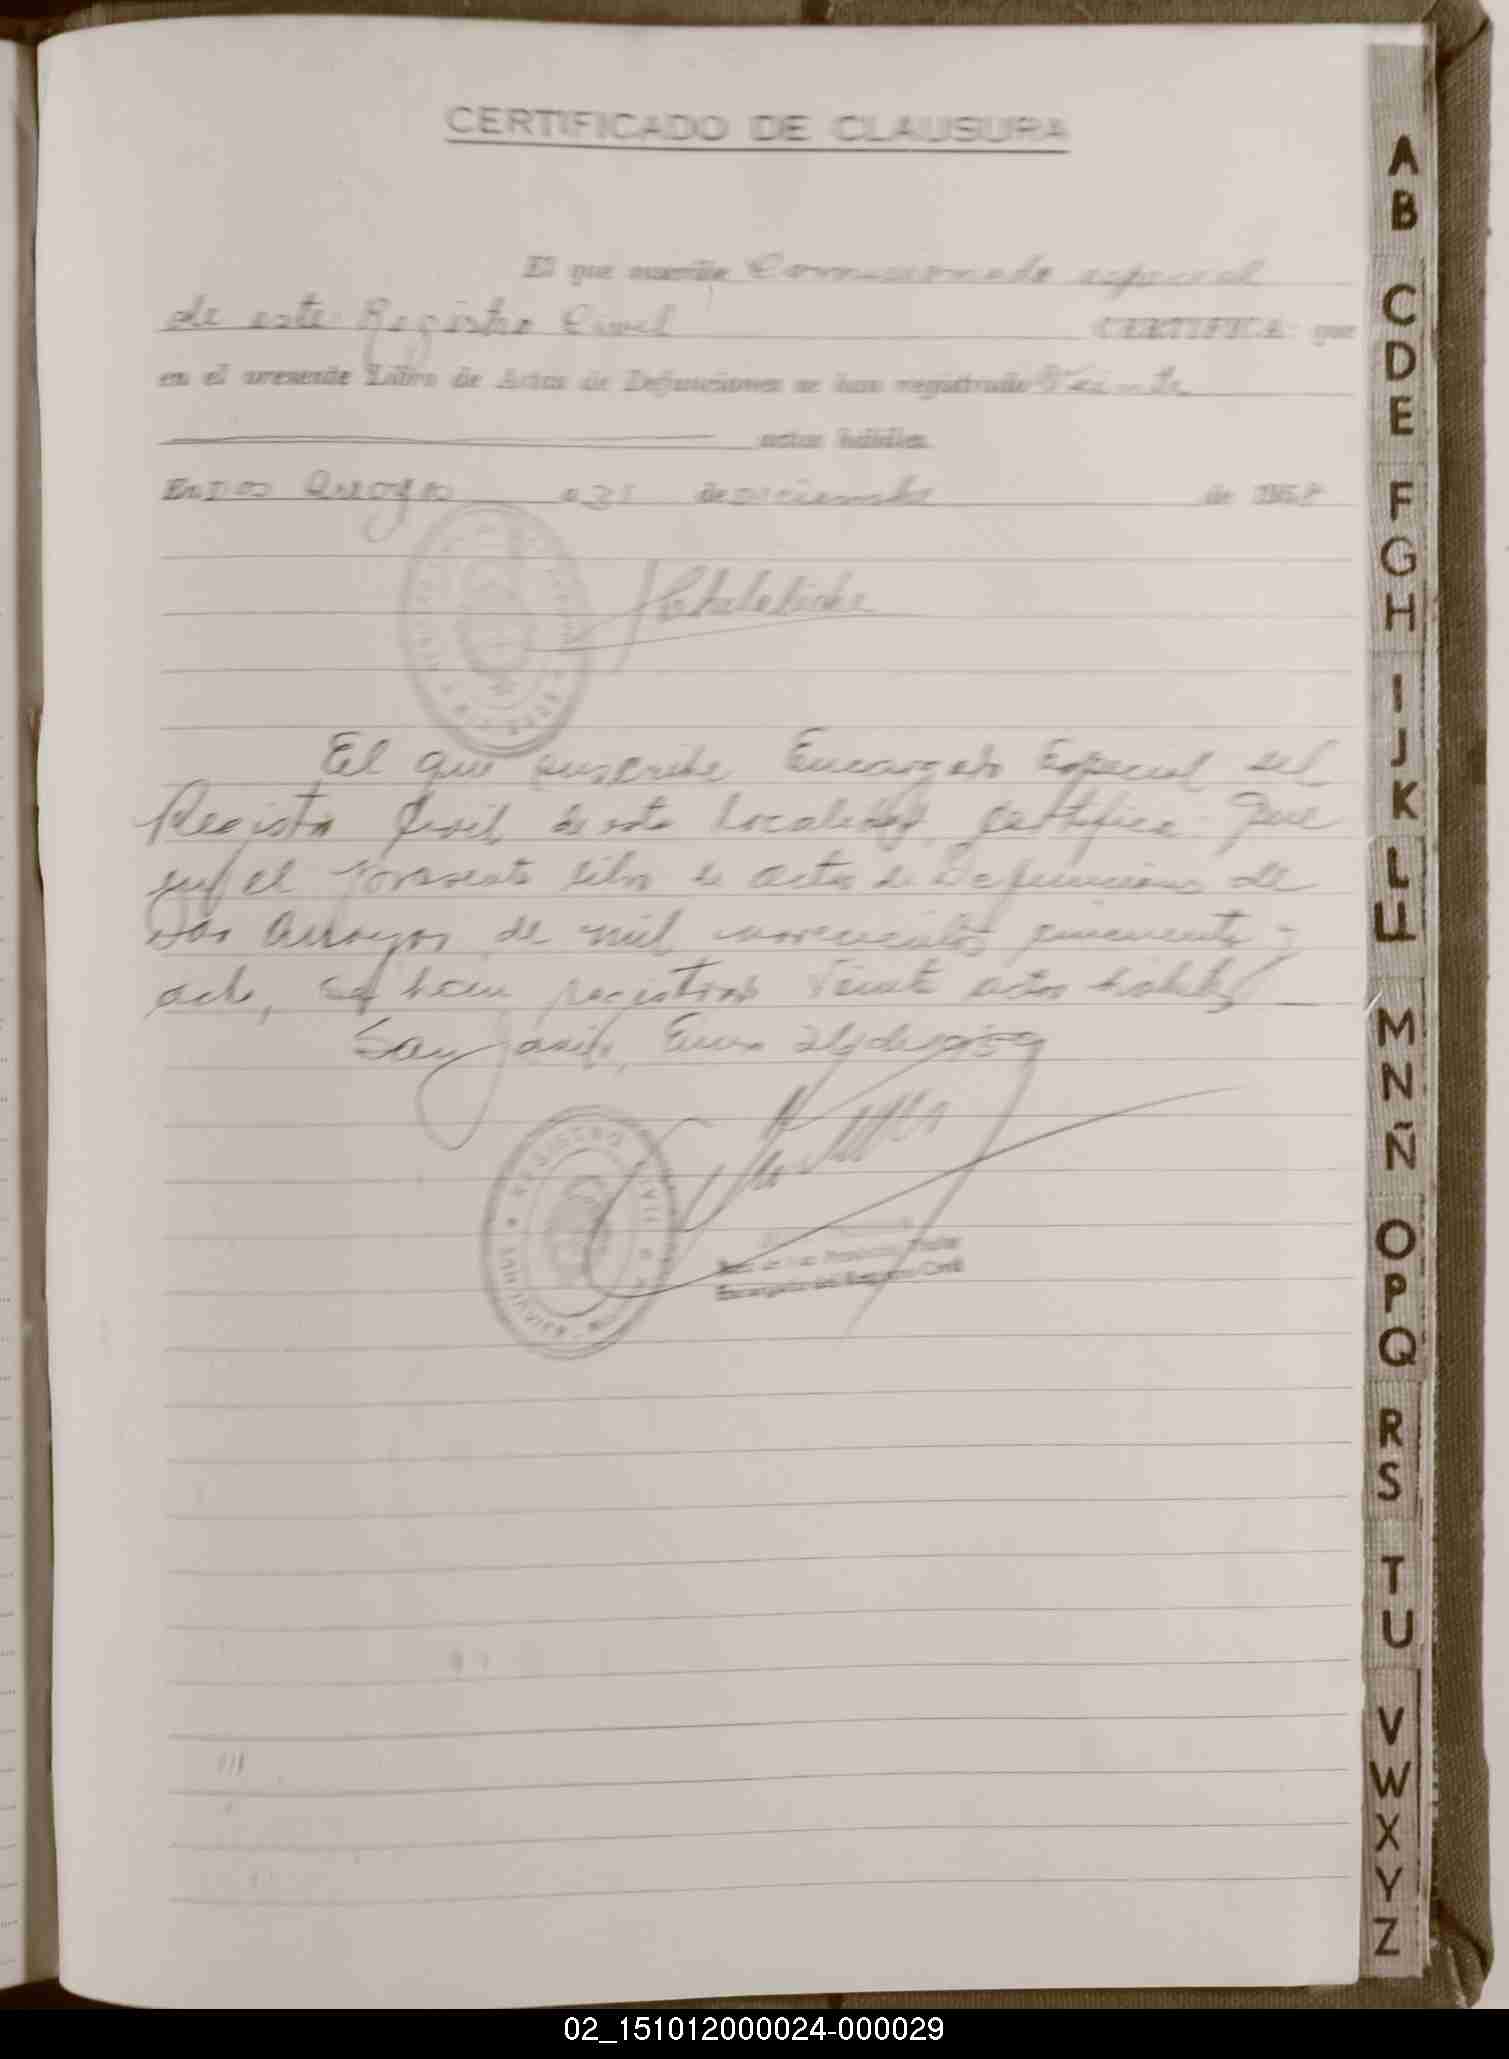 CERTIFICADO DE CLAUSURA
El que suscribe Comisionado especial
de este Registro Civil CERTIFICA: que
en el presente Libro de Actas de Defunciones se han registrado Veinte
actas hábiles.
En Dos Arroyos a 31 de Diciembre de 1958
El que suscribe Encargado Especial del
Registro Civil de esta Localidad, certifica que
en el presente libro de actas de Defunciones de
Dos Arroyos de mil novecientos cincuenta y
ocho, se han registrado Veinte actas habiles
San Javier, Enero de 1959
REGISTRO CIVIL
SAN JAVIER
Encargado del Registro Civil
A
B
C
D
E
F
G
H
I
J
K
L
LL
M
N
Ñ
O
P
Q
R
S
T
U
V
W
X
Y
Z
02_151012000024-000029